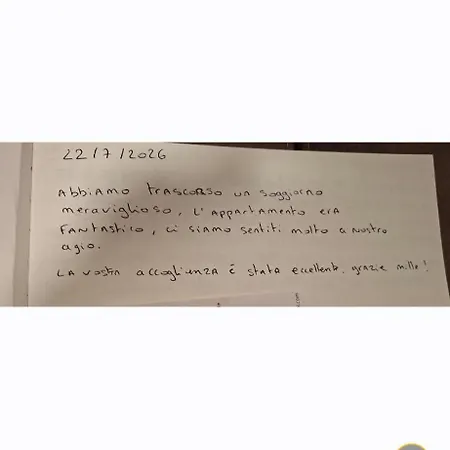 22/7/2026
Abbiamo trascorso un soggiorno
meraviglioso, l'appartamento era
fantastico, ci siamo sentiti molto a nostro
agio.
La vostra accoglienza è stata eccellente. grazie mille!